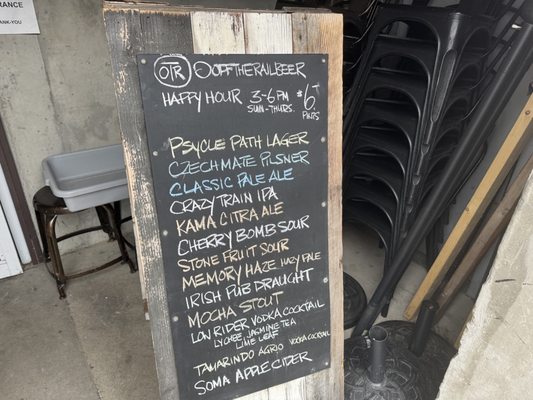 RANCE
ANK-YOU
OTR @OFFTHERAILBEER
HAPPY HOUR 3-6PM $6.
SUN-THURS. PINTS
PSYCLE PATH LAGER
CZECHMATE PILSNER
CLASSIC PALE ALE
CRAZY TRAIN IPA
KAMA CITRA ALE
CHERRY BOMB SOUR
STONE FRUIT SOUR
MEMORY HAZE HAZY PALE
IRISH PUB DRAUGHT
MOCHA STOUT
LOW RIDER VODKA COCKTAIL
LYCHEE, JASMINE TEA
LIME LEAF
TAMARINDO AGRIO VODKA COCKTAIL
SOMA APPLE CIDER